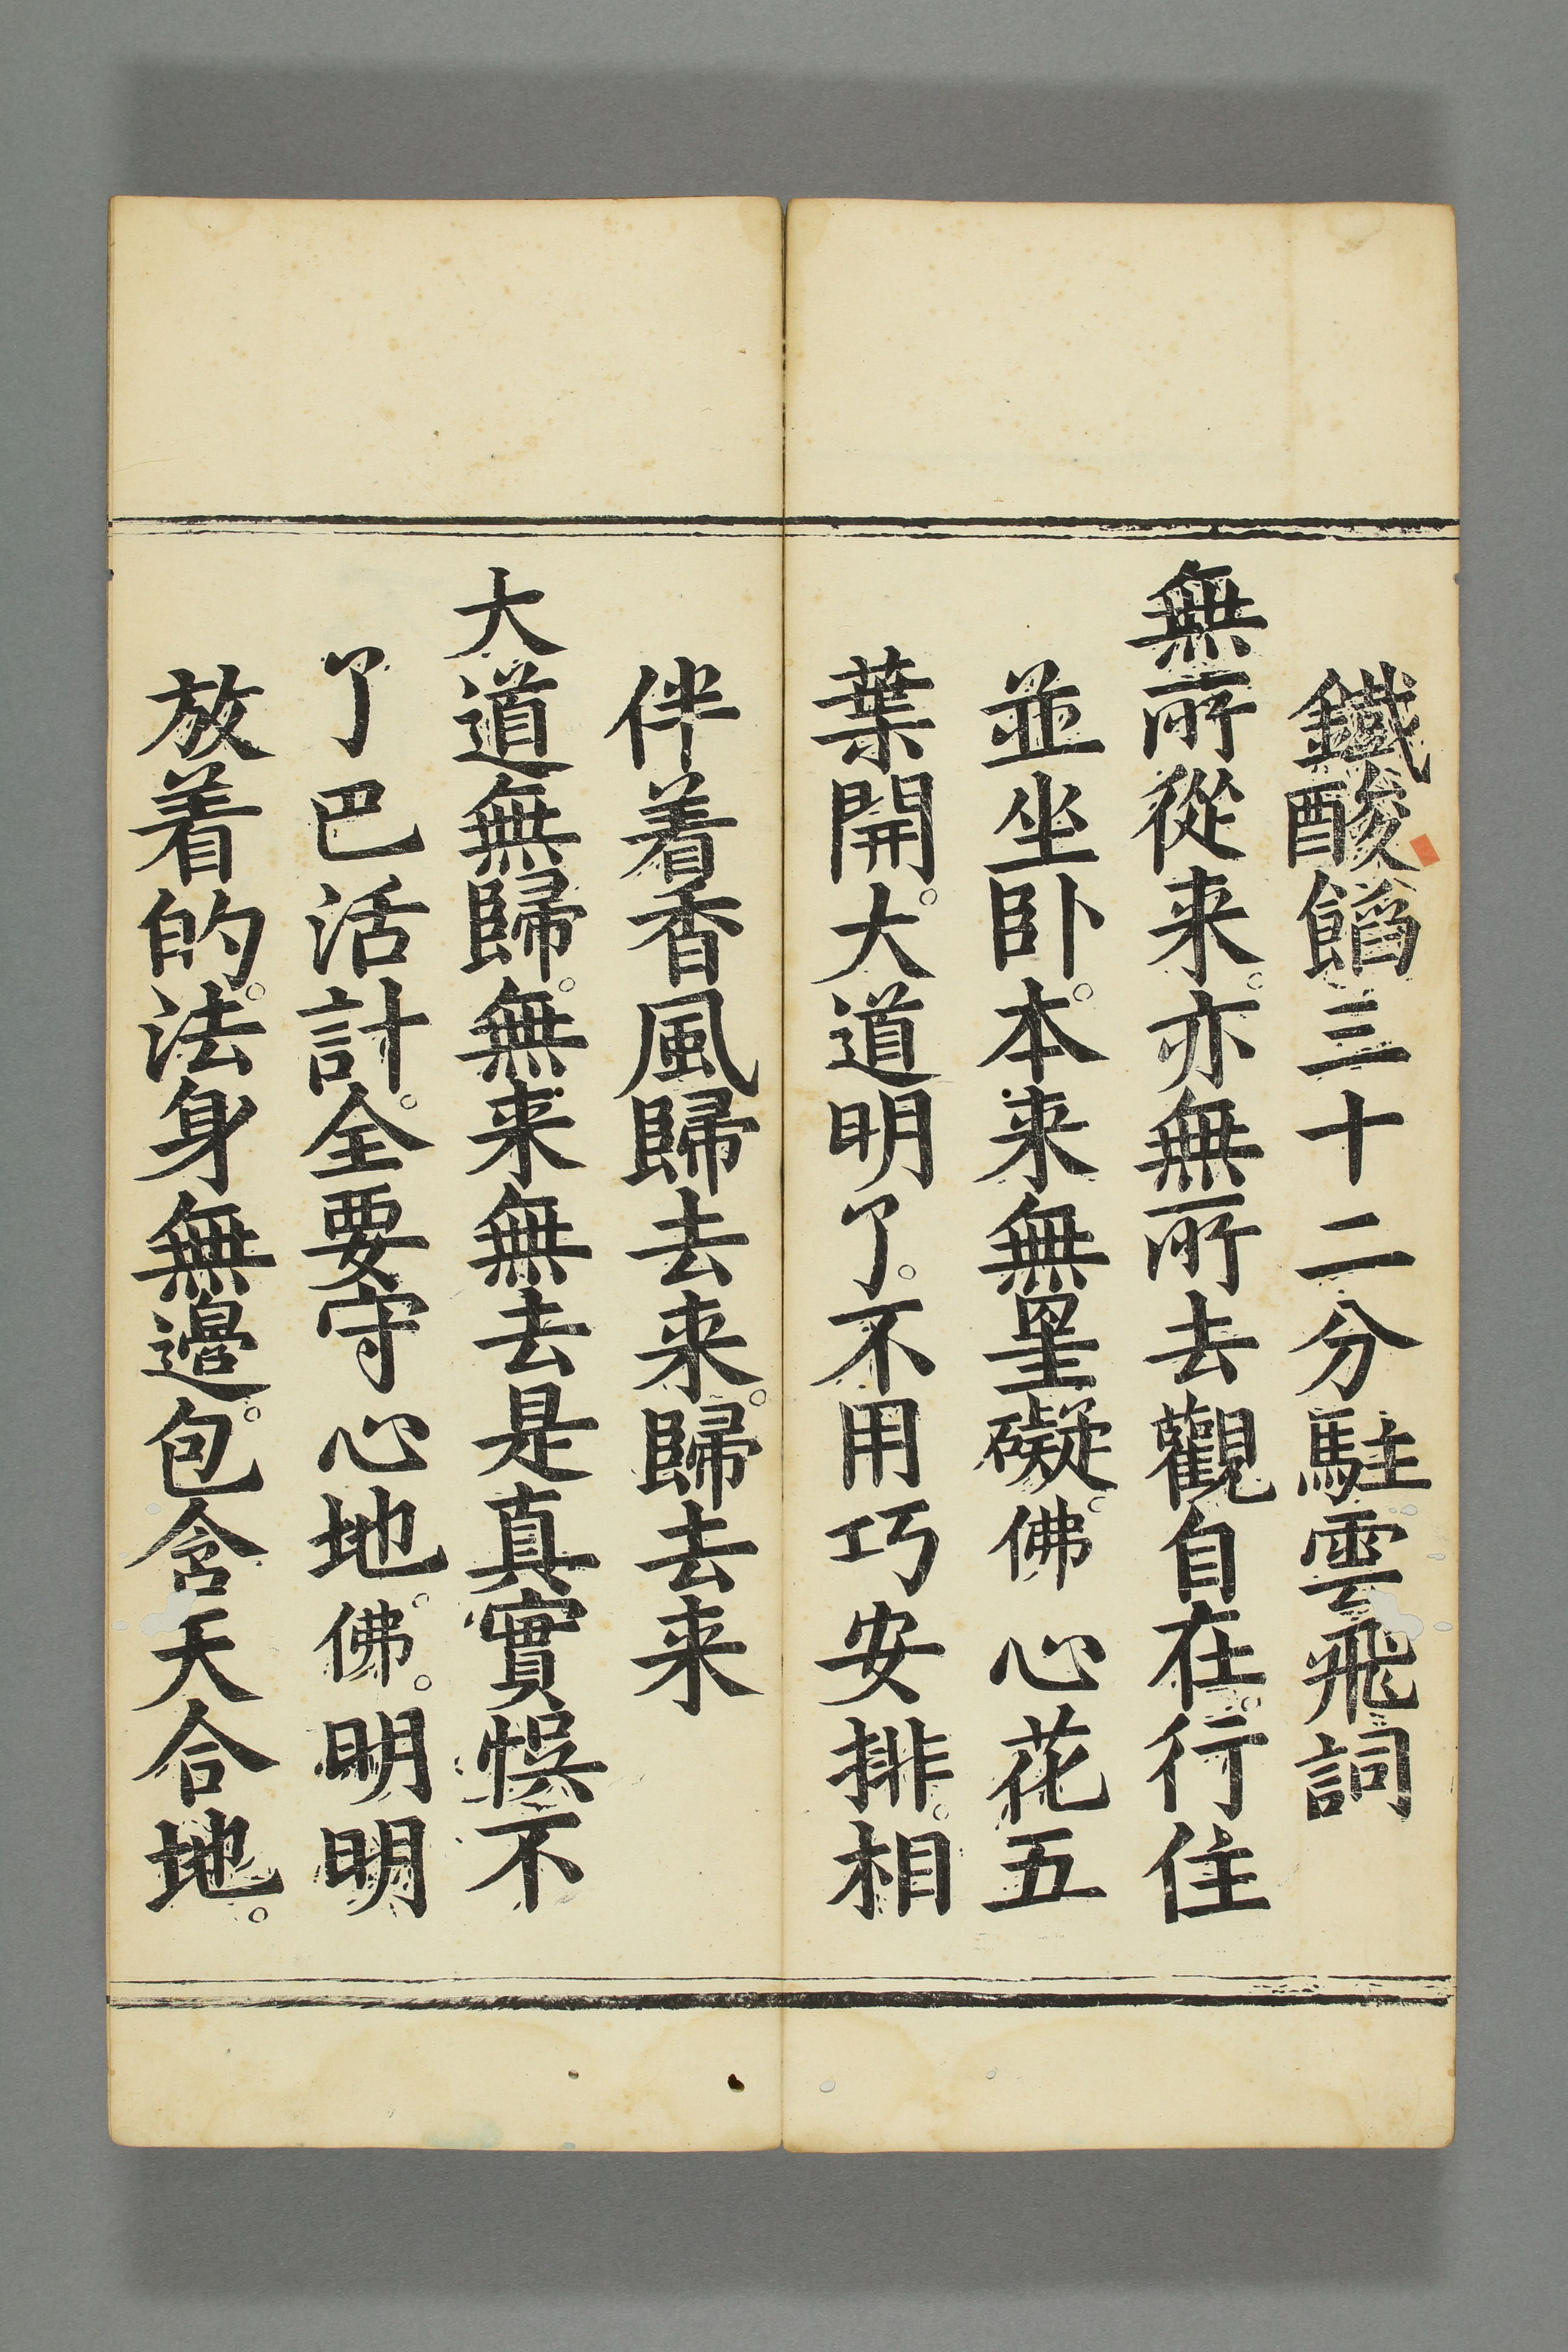 鐵酸餡三十二分駐雲飛詞
無所從来。亦無所去觀自在。行住
並坐卧。本来無罣礙。佛心花五
葉開。大道明了。不用巧安排。相
伴着香風歸去来。歸去来
大道無歸。無来無去是真實悮不
了巴活計。全要守心地。佛。明明
放着的。法身無邉。包含天合地。